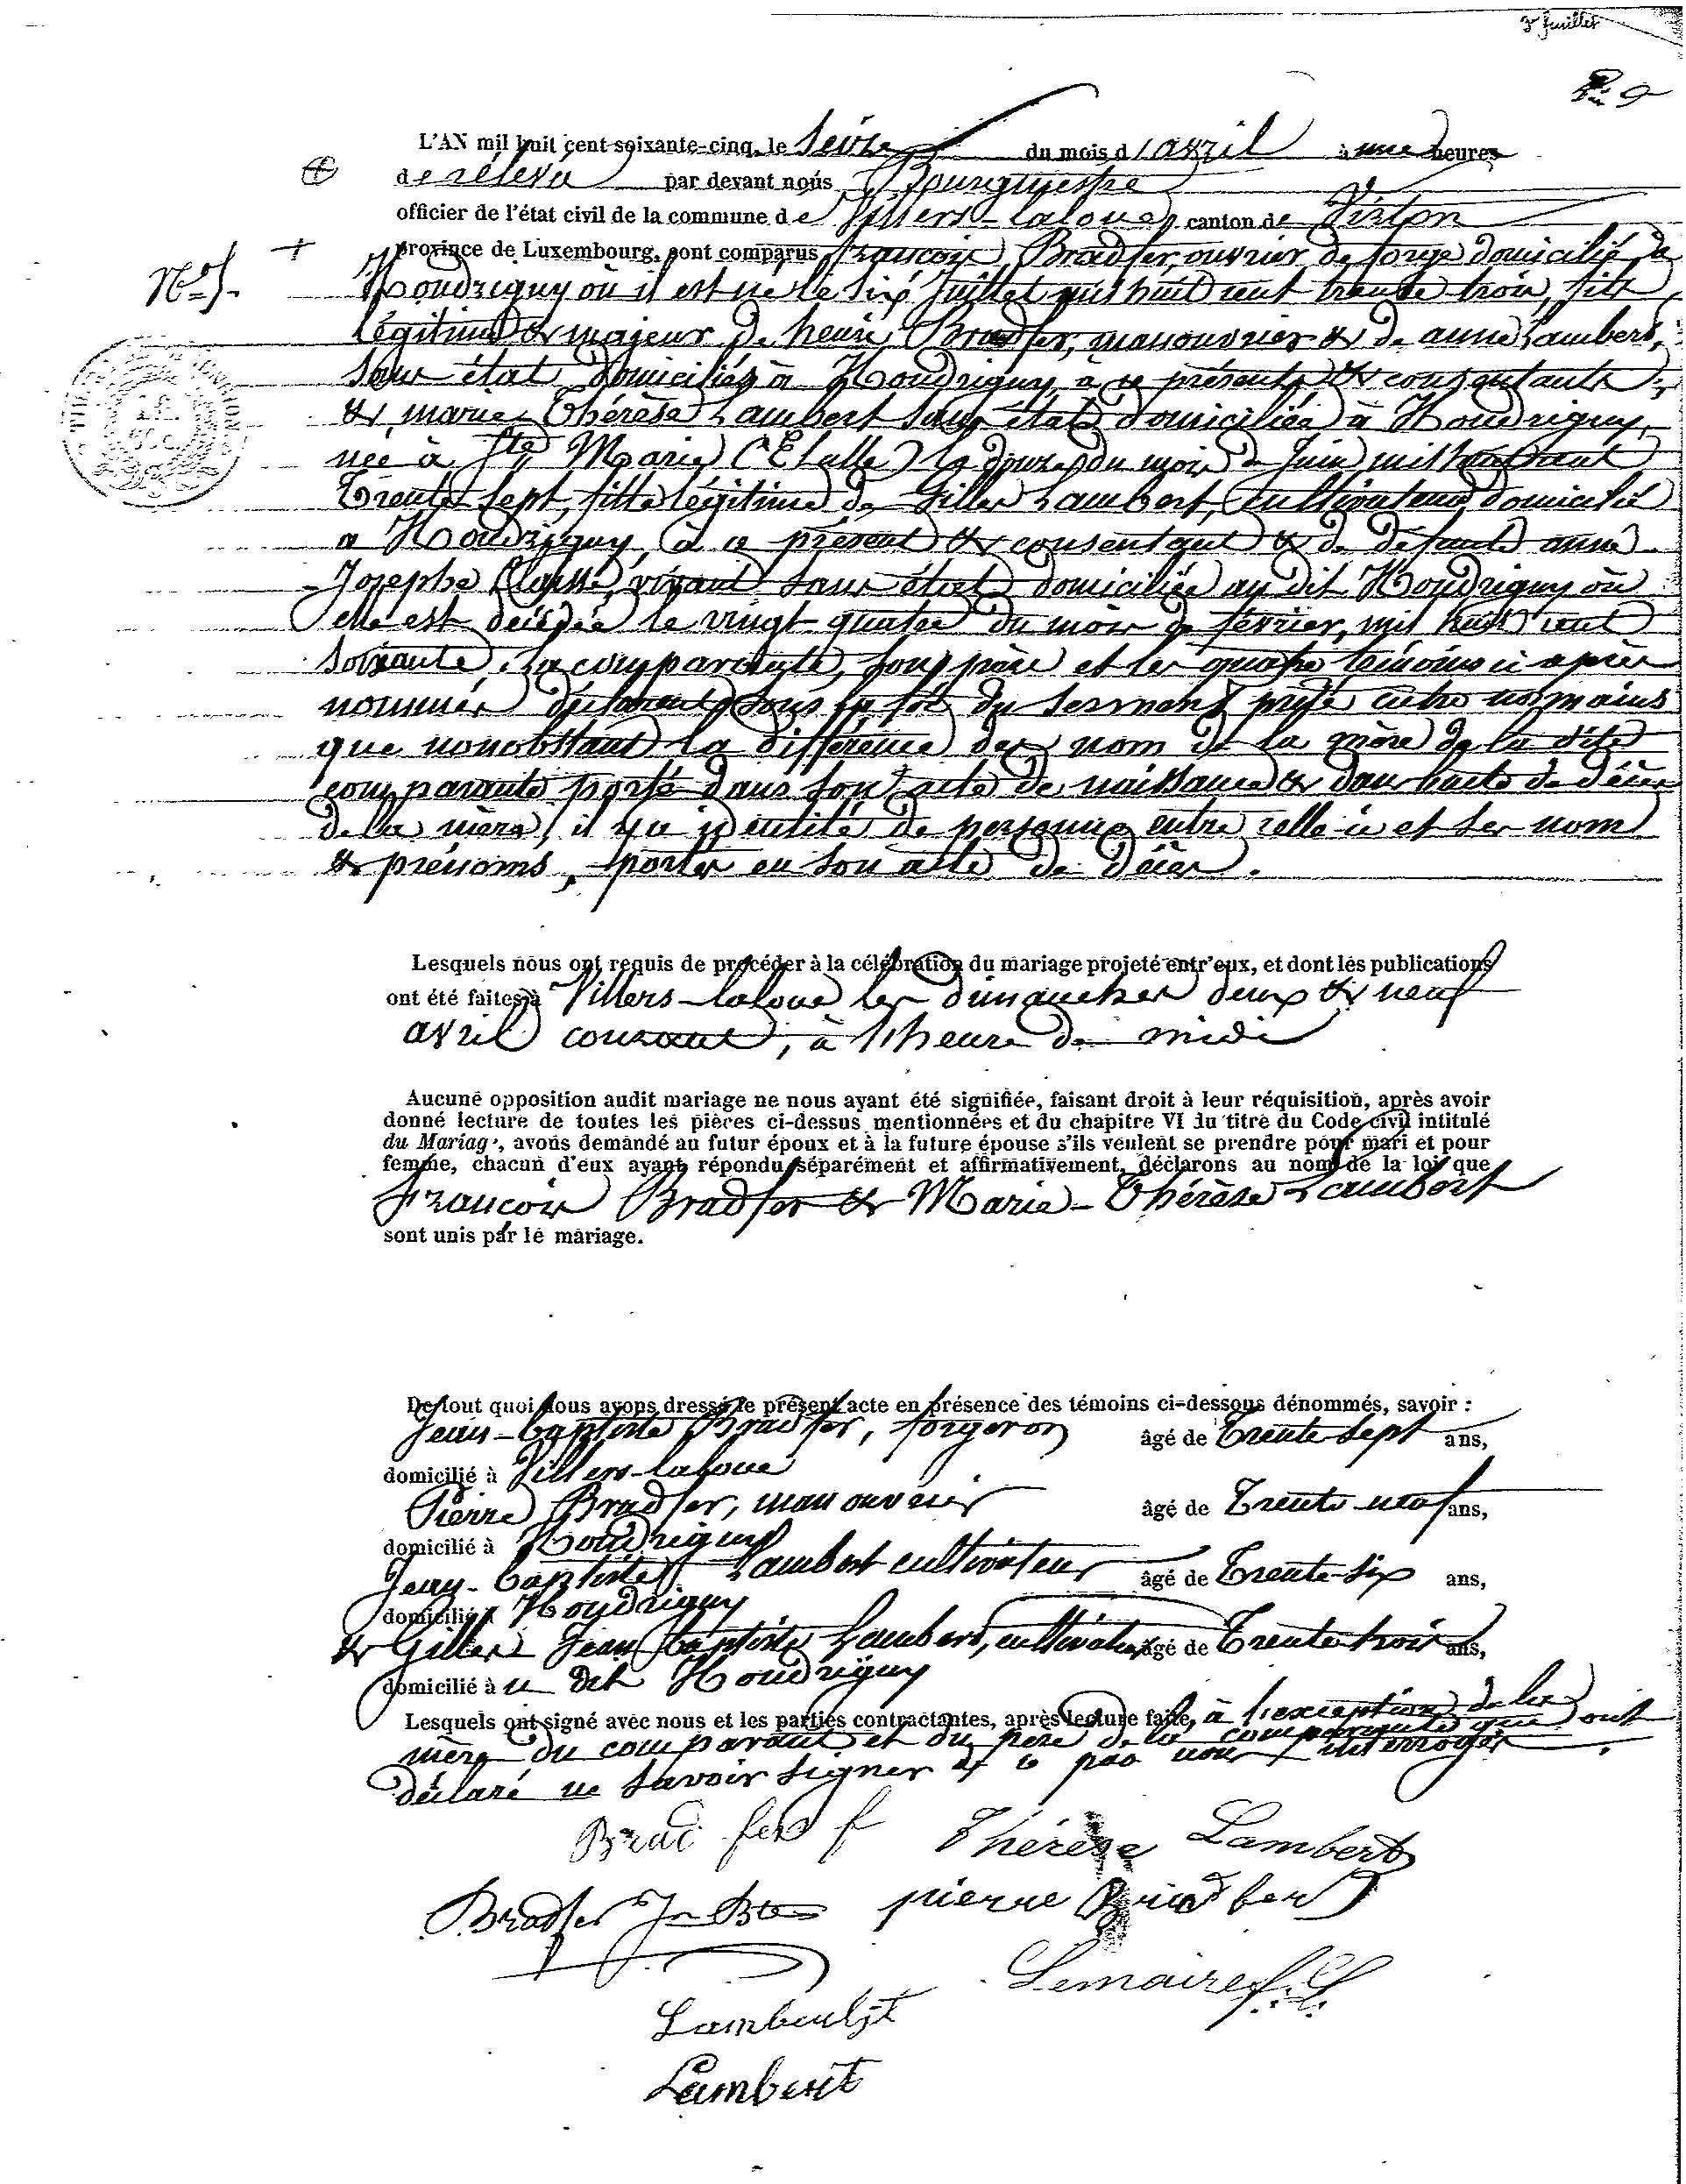 3e feuillet
L'AN mil huit cent soixante-cinq, le Seize du mois d'avril à une heures
de relevé par devant nous Bourgmestre
officier de l'état civil de la commune de Villers-laloue, canton de Virton
province de Luxembourg, sont comparus françois Bradfer, ouvrier de forge domicilié à
N° 5.
Houdrigny où il est né le six Juillet mil huit cent trente trois, fils
légitime & majeur de henri Bradfer, manouvrier & de anne Lambert,
sans état domiciliés à Houdrigny, à ce présents & consentants ;
& marie Thérèse Lambert sans état domiciliée à Houdrigny,
née à Ste Marie (Etalle) le douze du mois de Juin mil huit cent
Trente sept, fille légitime de Gilles Lambert, cultivateur domicilié
a Houdrigny, à ce présent & consentant & de défunte anne
Josephe, vivant sans état domiciliée au dit Houdrigny où
elle est décédée le vingt quatre du mois de février, mil huit cent
soixante. La comparante, son père et les quatre témoins ci après
nommés déclarent sous la foi du serment prêté entre nos mains
que nonobstant la différence des nom de la mère de la dite
comparante porté dans son acte de naissance & dans l'acte de décès
de la mère, il y a identité de personne entre celle-ci et ses nom
& prénoms, portés en son acte de décès.
Lesquels nous ont requis de procéder à la célébration du mariage projeté entr'eux, et dont les publications
ont été faites à Villers-laloue les dimanches deux & neuf
avril courant, à l'heure de midi
Aucune opposition audit mariage ne nous ayant été signifiée, faisant droit à leur réquisition, après avoir
donné lecture de toutes les pièces ci-dessus mentionnées et du chapitre VI du titre du Code civil intitulé
du Mariag', avons demandé au futur époux et à la future épouse s'ils veulent se prendre pour mari et pour
femme, chacun d'eux ayant répondu séparément et affirmativement, déclarons au nom de la loi que
François Bradfer & Marie-Thérèse Lambert
sont unis par le mariage.
De tout quoi nous avons dressé le présent acte en présence des témoins ci-dessous dénommés, savoir :
Jean-baptiste Bradfer, forgeron âgé de Trente-sept ans,
domicilié à Villers-laloue
Pierre Bradfer, manouvrier âgé de Trente-neuf ans,
domicilié à Houdrigny
Jean-baptiste Lambert cultivateur âgé de Trente-six ans,
domicilié à Houdrigny
& Gilles Jean baptiste Lambert, cultivateur âgé de Trente trois ans,
domicilié à u dit Houdrigny
Lesquels ont signé avec nous et les parties contractantes, après lecture faite, à l'exception de la
mère du comparant et du père de la comparante qui ont
déclaré ne savoir signer de ce par nous interrogés.
Brad fer f Thérèse Lambert
Bradfer Jn Bte pierre Bradfer
Lemaire
Lambert
Lambert